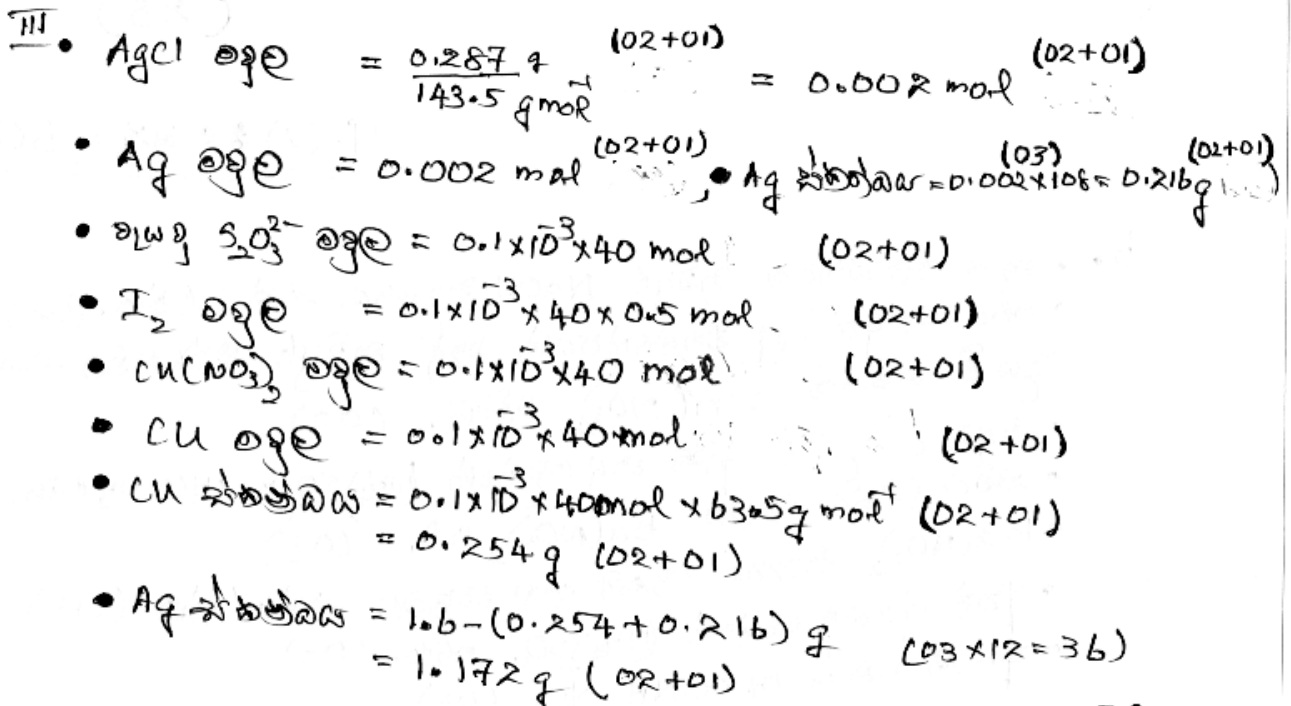 III
• AgCl මවුල = 0.287 g / 143.5 g mol⁻¹ (02+01) = 0.002 mol (02+01)
• Ag මවුල = 0.002 mol (02+01), • Ag ස්කන්ධය = 0.002×108 (03) = 0.216g (02+01)
• වැයවූ S₂O₃²⁻ මවුල = 0.1×10⁻³×40 mol (02+01)
• I₂ මවුල = 0.1×10⁻³×40×0.5 mol. (02+01)
• Cu(NO₃)₂ මවුල = 0.1×10⁻³×40 mol (02+01)
• Cu මවුල = 0.1×10⁻³×40 mol (02+01)
• Cu ස්කන්ධය = 0.1×10⁻³×40mol×63.5g mol⁻¹ (02+01)
= 0.254 g (02+01)
• Ag ස්කන්ධය = 1.6-(0.254+0.216) g (03×12=36)
= 1.172 g (02+01)